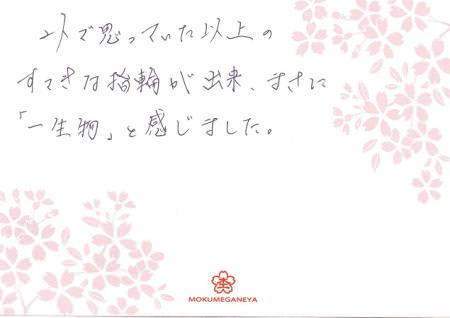 2人で思っていた以上の
すてきな指輪が出来、まさに
「一生物」と感じました。
MOKUMEGANEYA